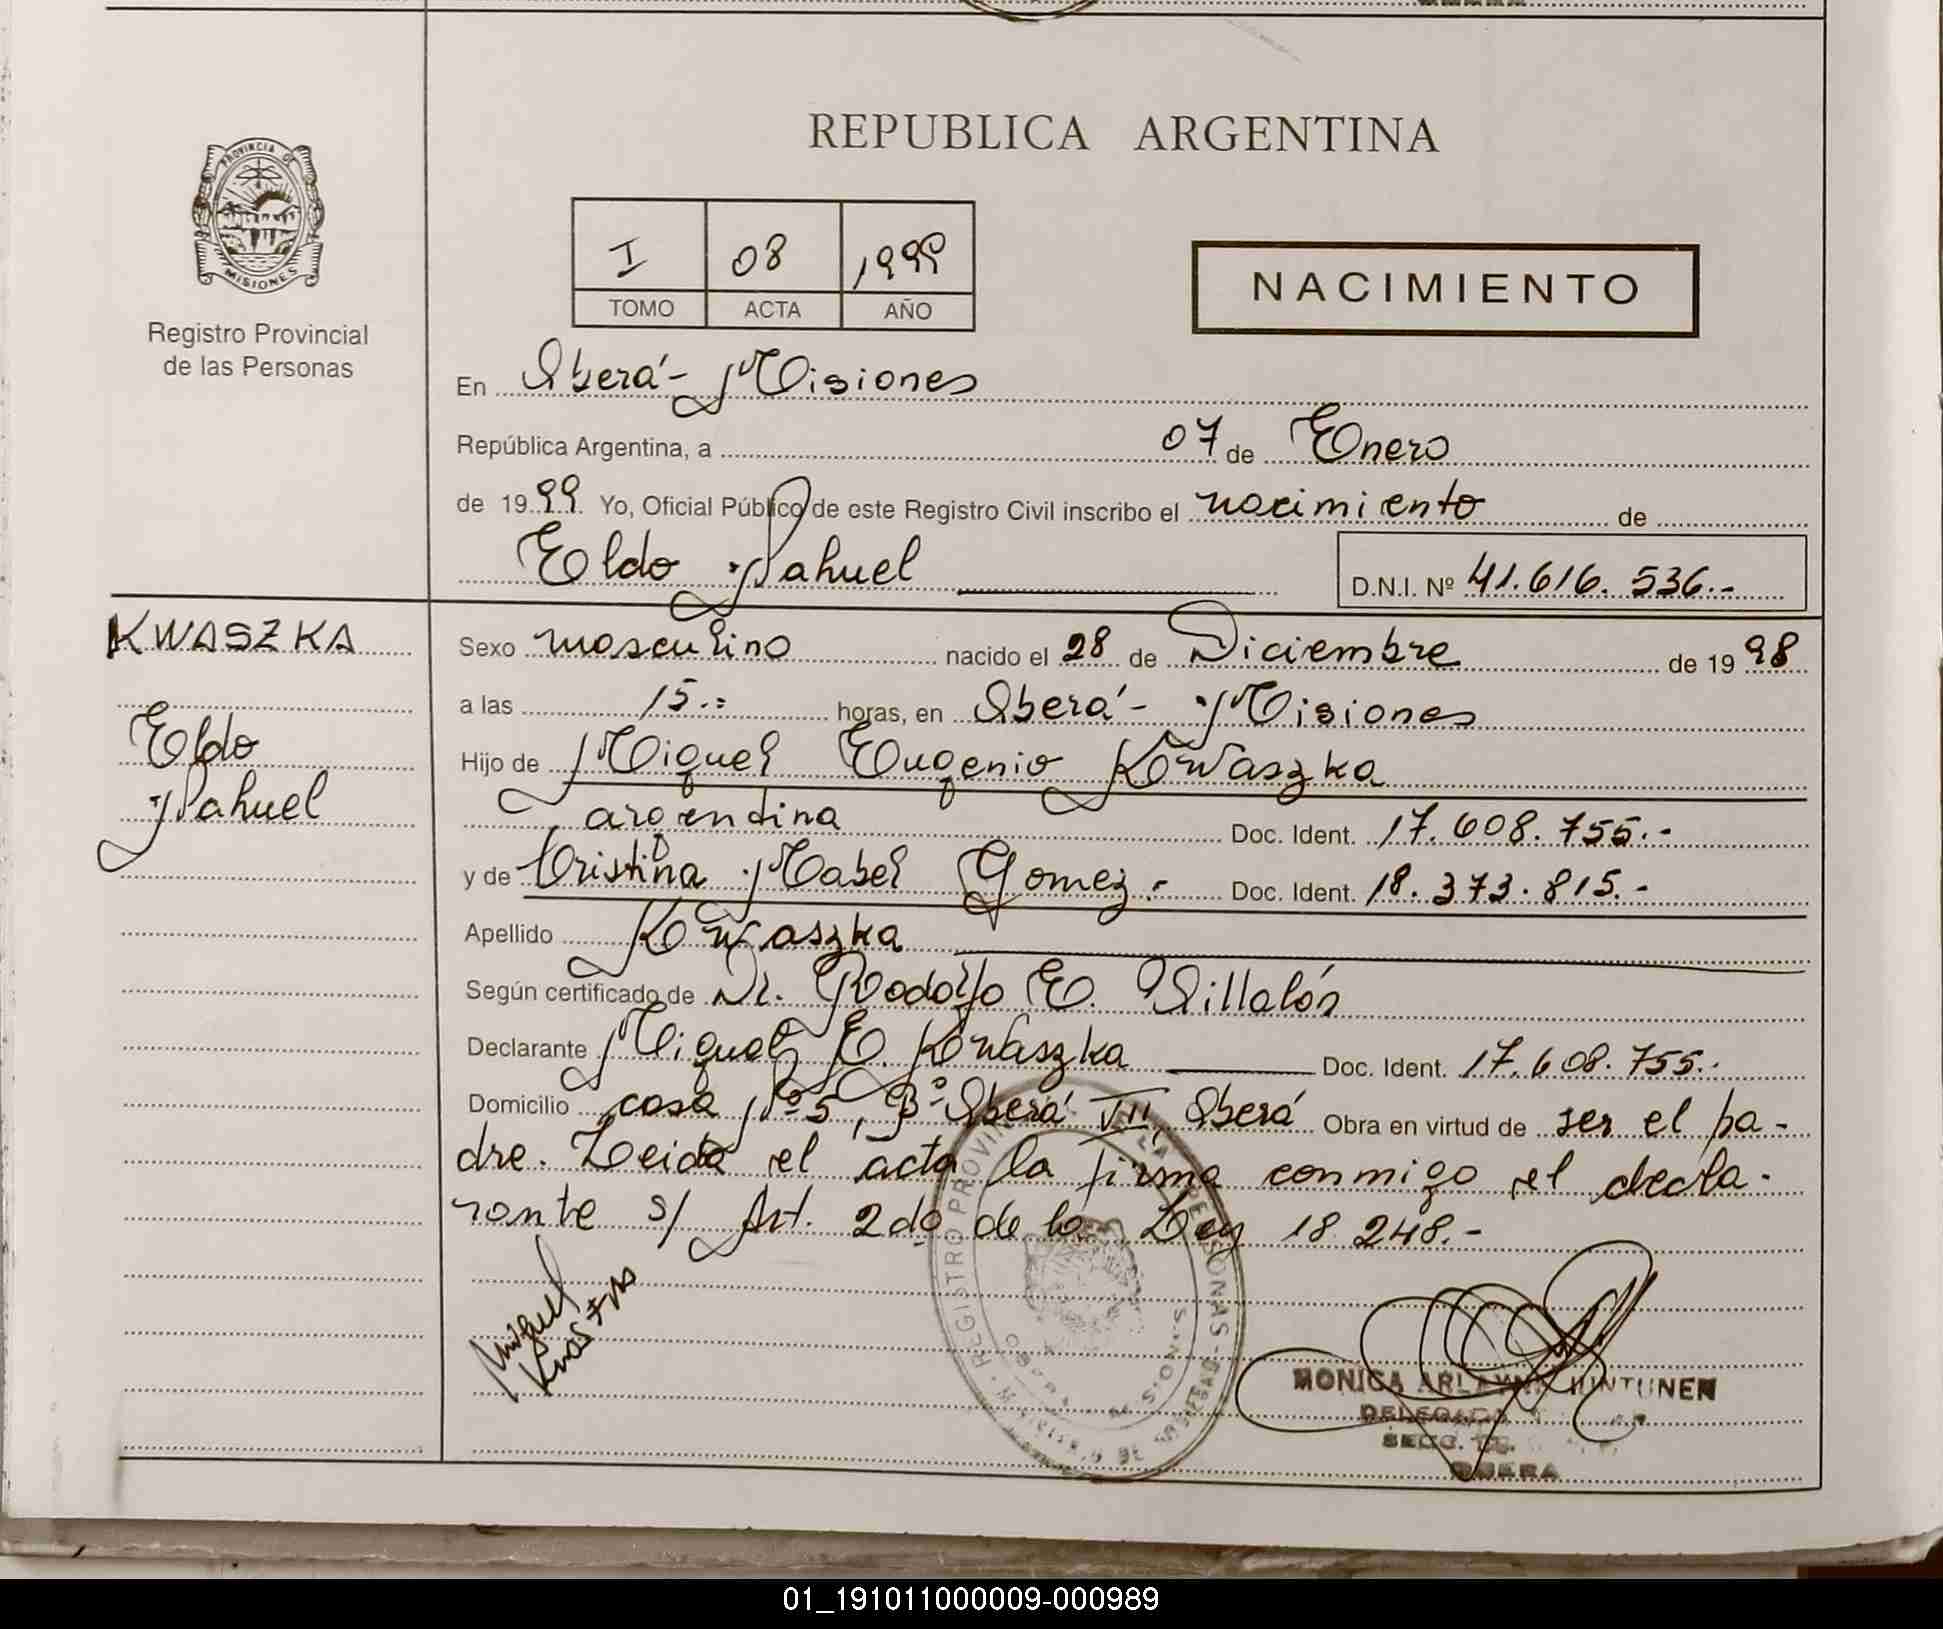 REPUBLICA ARGENTINA
PROVINCIA DE
MISIONES
Registro Provincial
de las Personas
I 08 1999
TOMO ACTA AÑO
NACIMIENTO
En Oberá - Misiones
República Argentina, a 07 de Enero
de 1999 Yo, Oficial Público de este Registro Civil inscribo el nacimiento de
Eldo Nahuel D.N.I. Nº 41.616.536.-
KWASZKA
Eldo
Nahuel
Sexo masculino nacido el 28 de Diciembre de 1998
a las 15.= horas, en Oberá - Misiones
Hijo de Miguel Eugenio Kwaszka
argentina Doc. Ident. 17.608.755.-
y de Cristina Mabel Gomez.- Doc. Ident. 18.373.815.-
Apellido Kwaszka
Según certificado de Dr. Rodolfo E. Villalón
Declarante Miguel E. Kwaszka Doc. Ident. 17.608.755.-
Domicilio casa Nº 5, Bº Oberá VII, Oberá Obra en virtud de ser el pa-
dre. Leida el acta la firma conmigo el decla-
rante s/ Art. 2do de la Ley 18.248.-
Miguel
REGISTRO PROVINCIAL DE LAS PERSONAS
MONICA ARLAYNE HUNTUNEN
DELEGADA
SECC.
OBERA
01_191011000009-000989